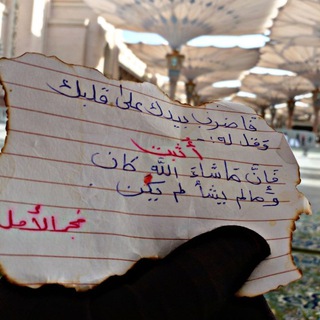 فاضرب بيدك على قلبك
وقل له:
أثبت
فإن ما شاء الله كان
وما لم يشأ لم يكن.
فجر الأمل